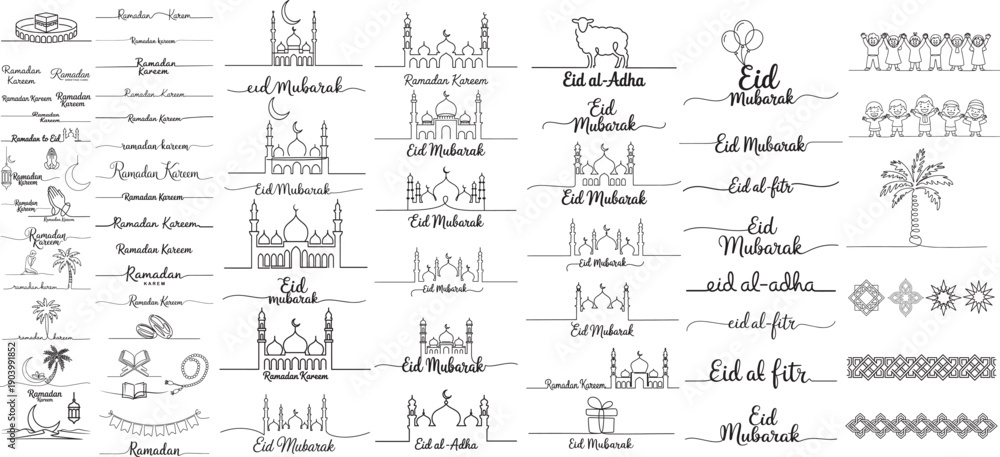 Ramadan
Kareem
Ramadan
Ramadan Kareem
Ramadan
Kareem
Ramadan
Kareem
Ramadan to Eid
Ramadan
Kareem
Ramadan
Kareem
Ramadan Kareem
Ramadan
Kareem
ramadan kareem
ramadan kareem
Ramadan
Kareem
Ramadan Kareem
Ramadan kareem
Ramadan
Kareem
Ramadan Kareem
Ramadan Kareem
ramadan kareem
Ramadan Kareem
Ramadan Kareem
Ramadan Kareem
Ramadan Kareem
Ramadan
KAREM
Ramadan Kareem
Ramadan
eid Mubarak
Eid Mubarak
Eid
mubarak
Ramadan Kareem
Eid Mubarak
Ramadan Kareem
Eid Mubarak
Eid Mubarak
Eid Mubarak
Eid Mubarak
Eid al-Adha
Eid al-Adha
Eid
Mubarak
Eid Mubarak
Eid Mubarak
Eid Mubarak
Ramadan Kareem
Eid Mubarak
Eid
Mubarak
Eid Mubarak
Eid al-fitr
Eid
Mubarak
eid al-adha
eid al-fitr
Eid al fitr
Eid
Mubarak
Adobe Stock | #1903991852